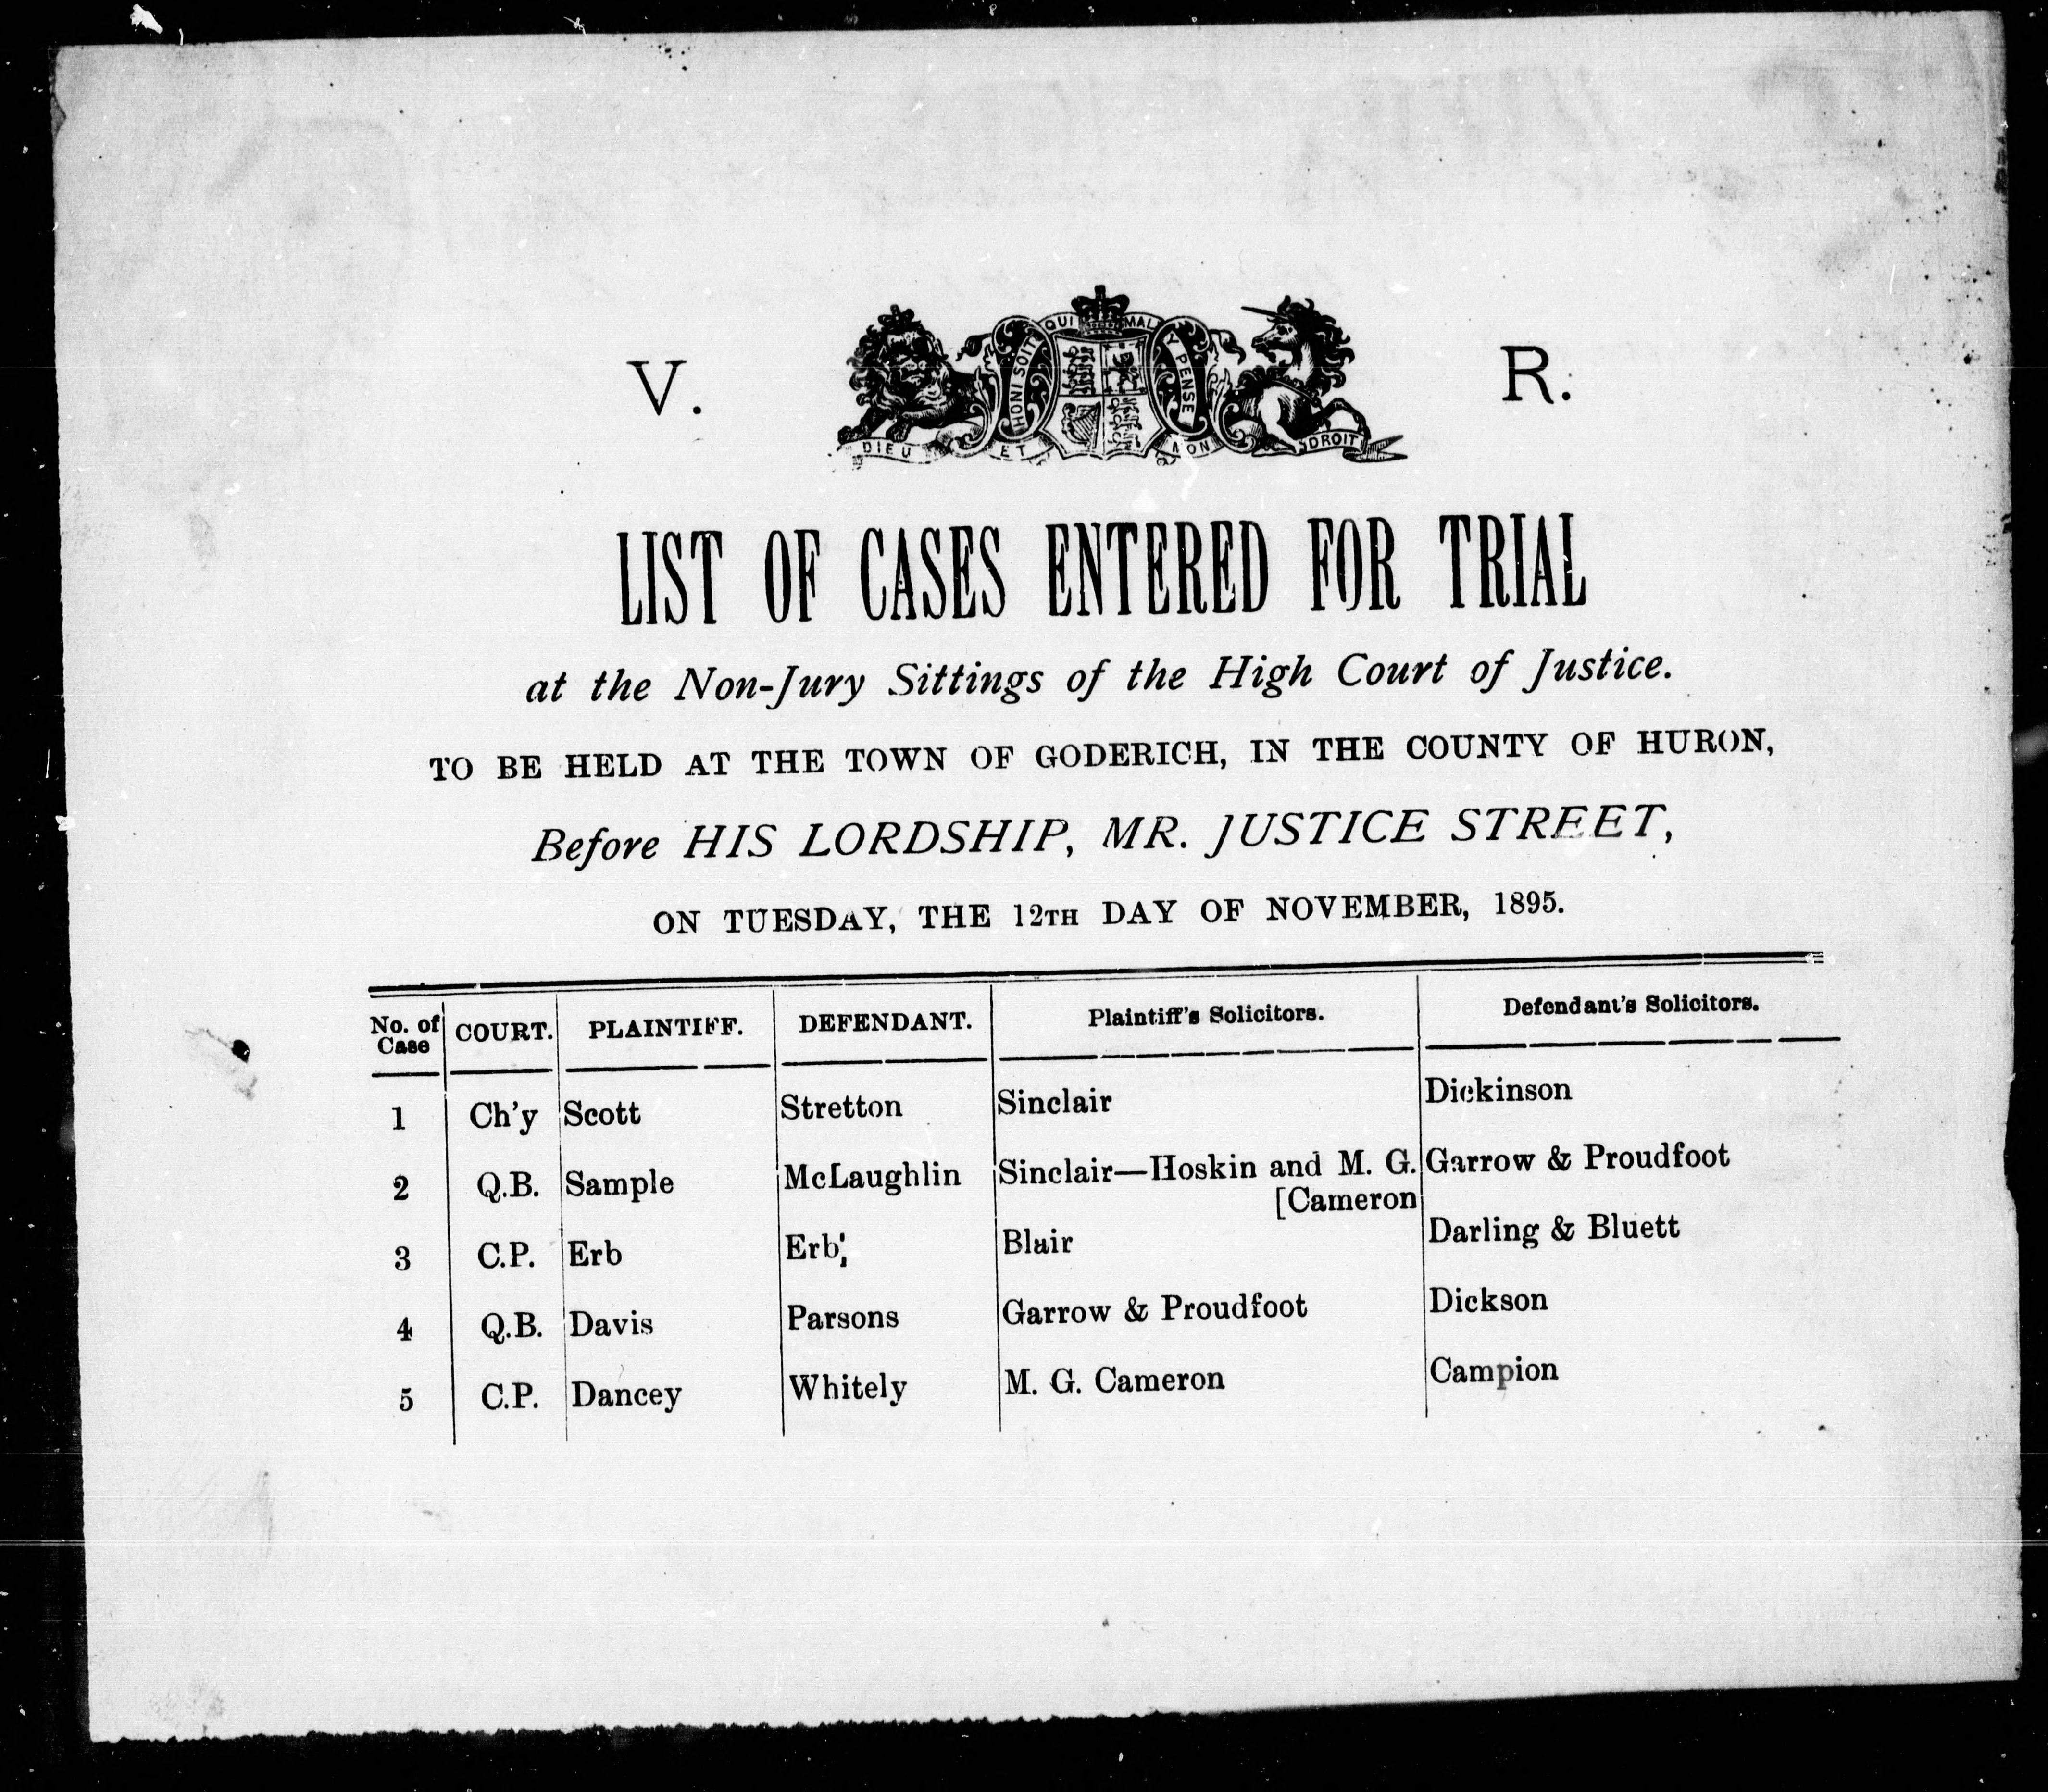 V. R.
HONI SOIT QUI MAL Y PENSE
DIEU ET MON DROIT
LIST OF CASES ENTERED FOR TRIAL
at the Non-Jury Sittings of the High Court of Justice.
TO BE HELD AT THE TOWN OF GODERICH, IN THE COUNTY OF HURON,
Before HIS LORDSHIP, MR. JUSTICE STREET,
ON TUESDAY, THE 12TH DAY OF NOVEMBER, 1895.
No. of Case COURT. PLAINTIFF. DEFENDANT. Plaintiff's Solicitors. Defendant's Solicitors.
1 Ch'y Scott Stretton Sinclair Dickinson
2 Q.B. Sample McLaughlin Sinclair—Hoskin and M. G. Garrow & Proudfoot
[Cameron
3 C.P. Erb Erb Blair Darling & Bluett
4 Q.B. Davis Parsons Garrow & Proudfoot Dickson
5 C.P. Dancey Whitely M. G. Cameron Campion